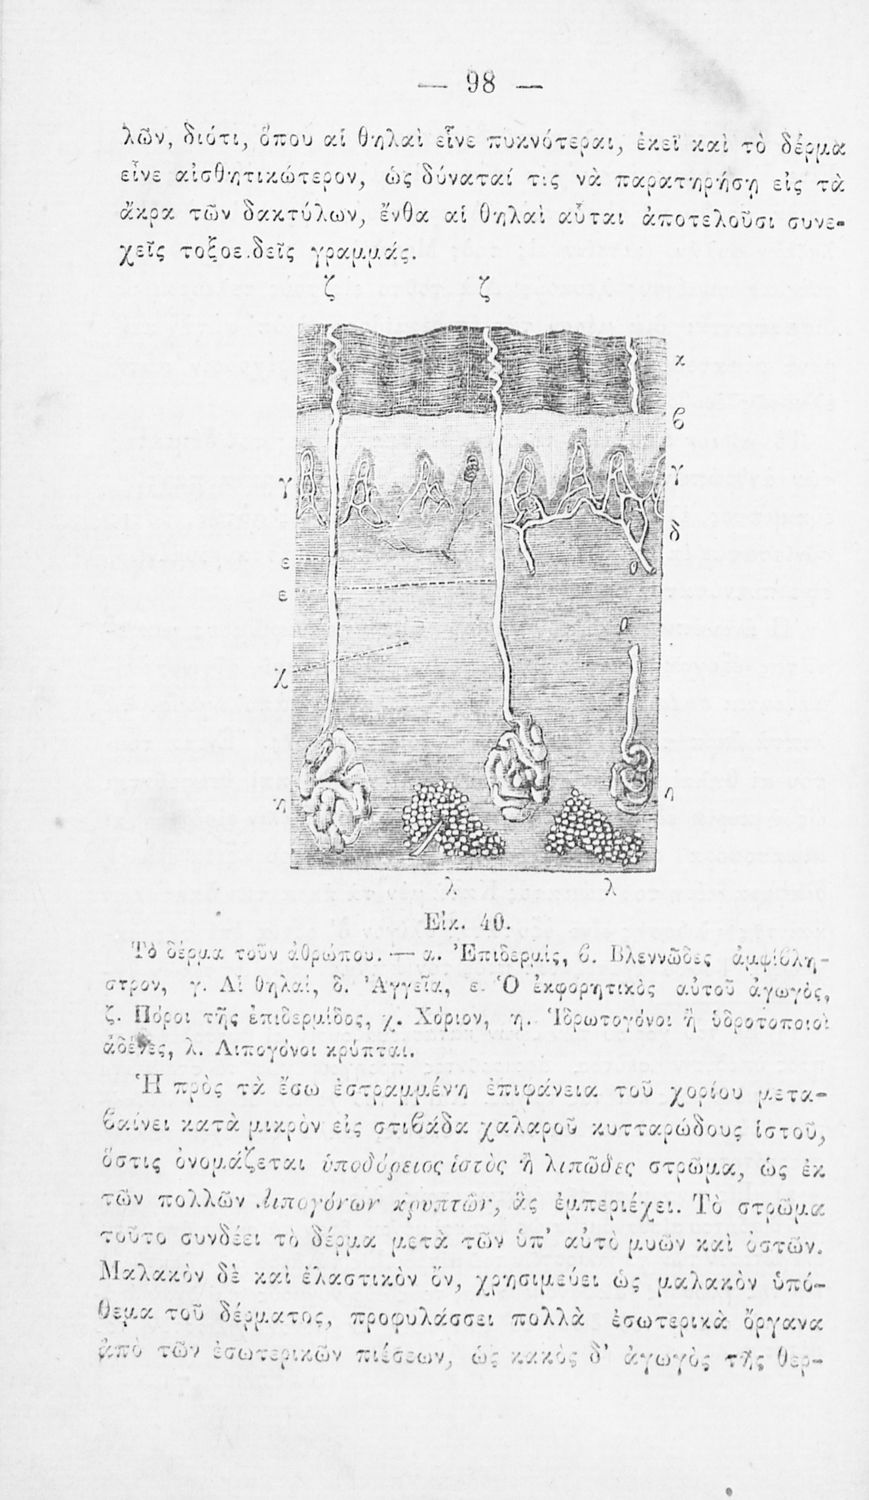 — 98 —
λῶν, διότι, ὅπου αἱ θηλαὶ εἶνε πυκνότεραι, ἐκεῖ καὶ τὸ δέρμα
εἶνε αἰσθητικώτερον, ὡς δύναταί τις νὰ παρατηρήσῃ εἰς τὰ
ἄκρα τῶν δακτύλων, ἔνθα αἱ θηλαὶ αὗται ἀποτελοῦσι συνε-
χεῖς τοξοειδεῖς γραμμάς.
ζ ζ
κ
β
γ γ
δ
ε
ε
α
χ
η η
λ λ
Εἰκ. 40.
Τὸ δέρμα τοῦν ἀθρώπου. — α. Ἐπιδερμίς, β. Βλεννῶδες ἀμφίβλη-
στρον, γ. Αἱ θηλαί, δ. Ἀγγεῖα, ε. Ὁ ἐκφορητικὸς αὐτοῦ ἀγωγὸς,
ζ. Πόροι τῆς ἐπιδερμίδος, χ. Χόριον, η. Ἱδρωτογόνοι ἢ ὑδροτοποιοὶ
ἀδένες, λ. Λιπογόνοι κρύπται.
Ἡ πρὸς τὰ ἔσω ἐστραμμένη ἐπιφάνεια τοῦ χορίου μετα-
βαίνει κατὰ μικρὸν εἰς στιβάδα χαλαροῦ κυτταρώδους ἱστοῦ,
ὅστις ὀνομάζεται ὑποδόρειος ἱστὸς ἢ λιπῶδες στρῶμα, ὡς ἐκ
τῶν πολλῶν λιπογόνων κρυπτῶν, ἃς ἐμπεριέχει. Τὸ στρῶμα
τοῦτο συνδέει τὸ δέρμα μετὰ τῶν ὑπ' αὐτὸ μυῶν καὶ ὀστῶν.
Μαλακὸν δὲ καὶ ἐλαστικὸν ὂν, χρησιμεύει ὡς μαλακὸν ὑπό-
θεμα τοῦ δέρματος, προφυλάσσει πολλὰ ἐσωτερικὰ ὄργανα
ἀπὸ τῶν ἐσωτερικῶν πιέσεων, ὡς κακὸς δ' ἀγωγὸς τῆς θερ-